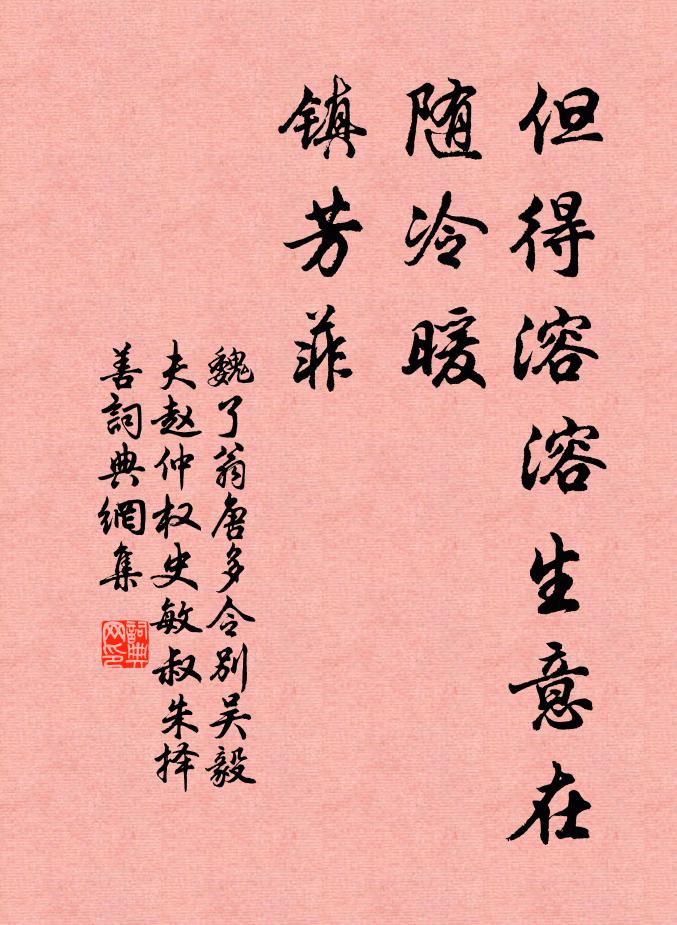 但得溶溶生意在
随冷暖
镇芳菲
魏了翁唐多令别吴毅
夫赵仲权史敏叔朱择
善詞典網集
詞典网印